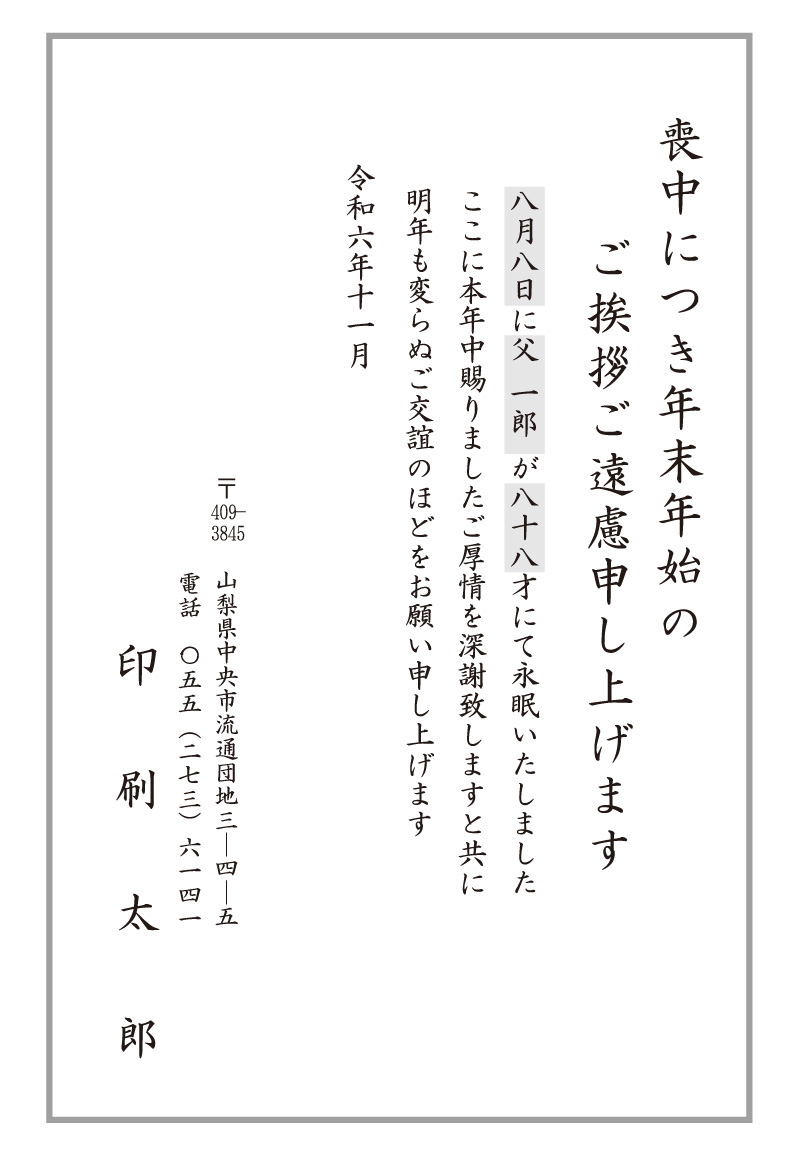 喪中につき年末年始の
ご挨拶ご遠慮申し上げます
八月八日に父 一郎 が八十八才にて永眠いたしました
ここに本年中賜りましたご厚情を深謝致しますと共に
明年も変らぬご交誼のほどをお願い申し上げます
令和六年十一月
〒409-3845 山梨県中央市流通団地三―四―五
電話 〇五五（二七三）六一四一
印刷太郎